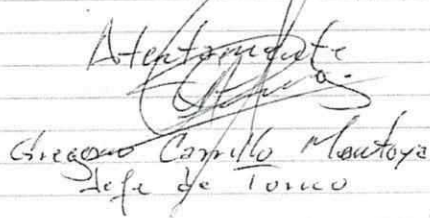 Atentamente
Gregorio Carrillo Montoya
Jefe de Torno